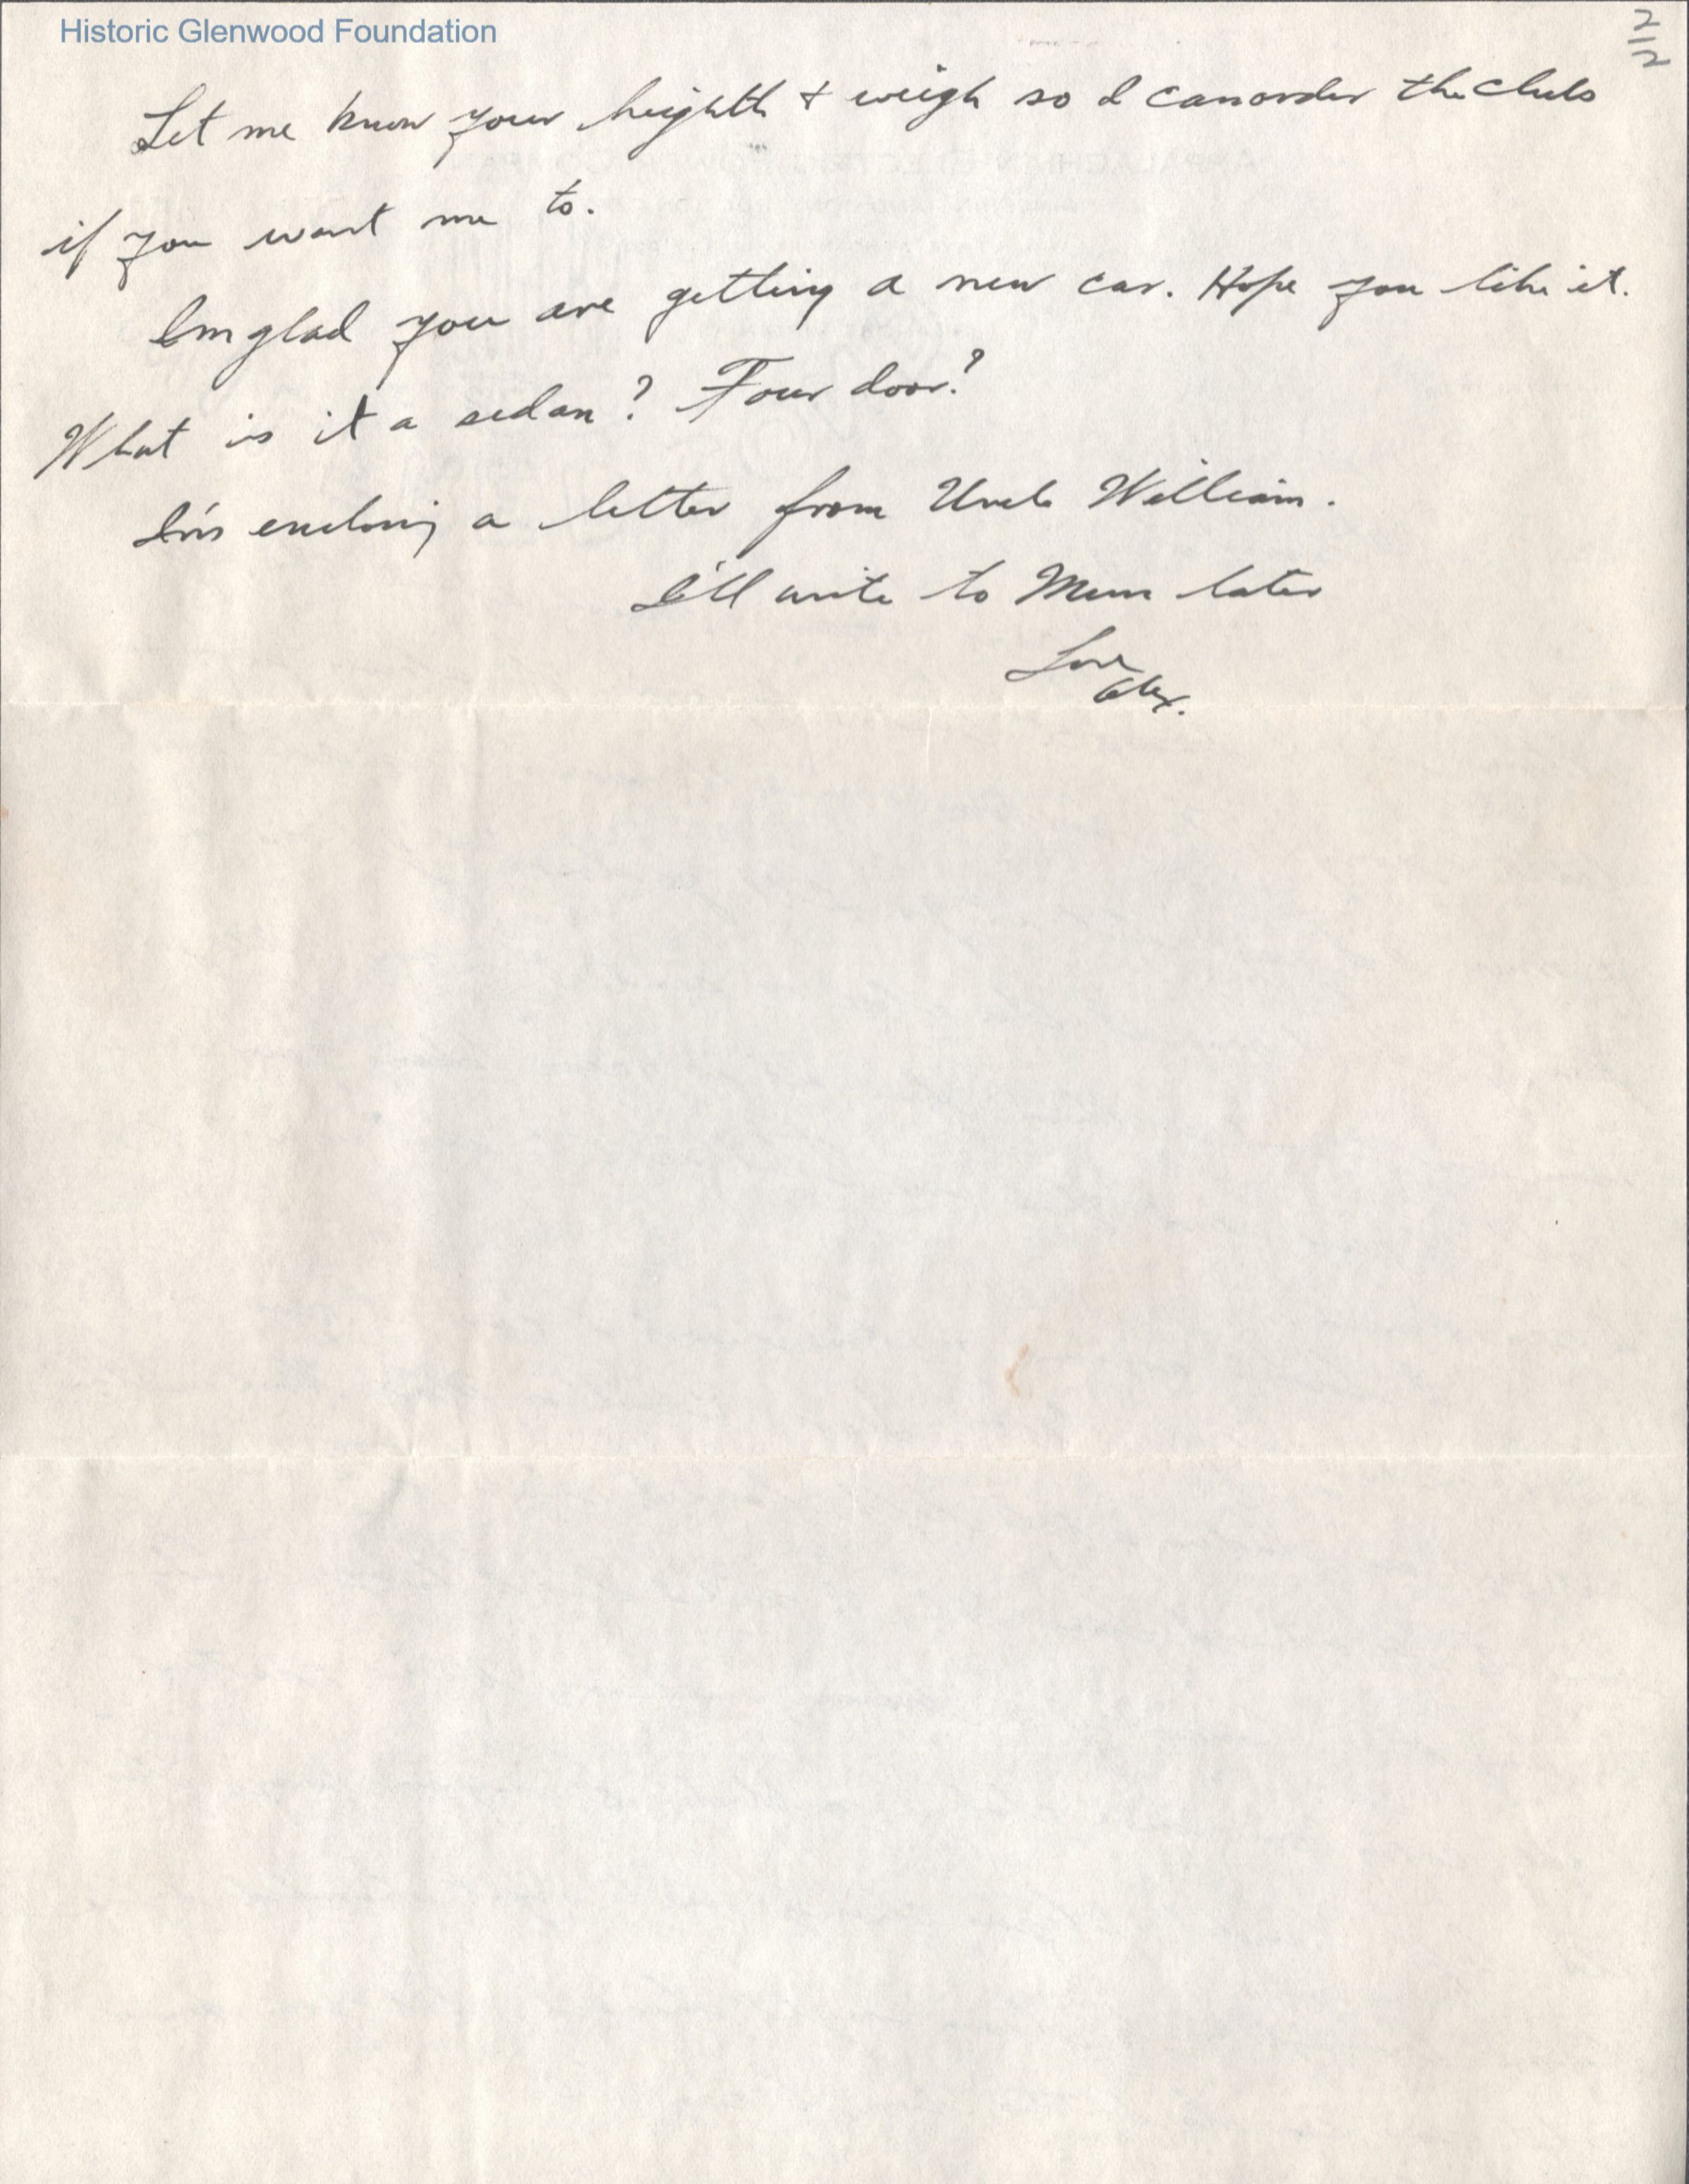 Historic Glenwood Foundation
2/2
Let me know your heighth + weigh so I can order the clubs
if you want me to.
Im glad you are getting a new car. Hope you like it.
What is it a sedan? Four door?
I'm enclosing a letter from Uncle William.
I'll write to Mum later
Love
Alex.